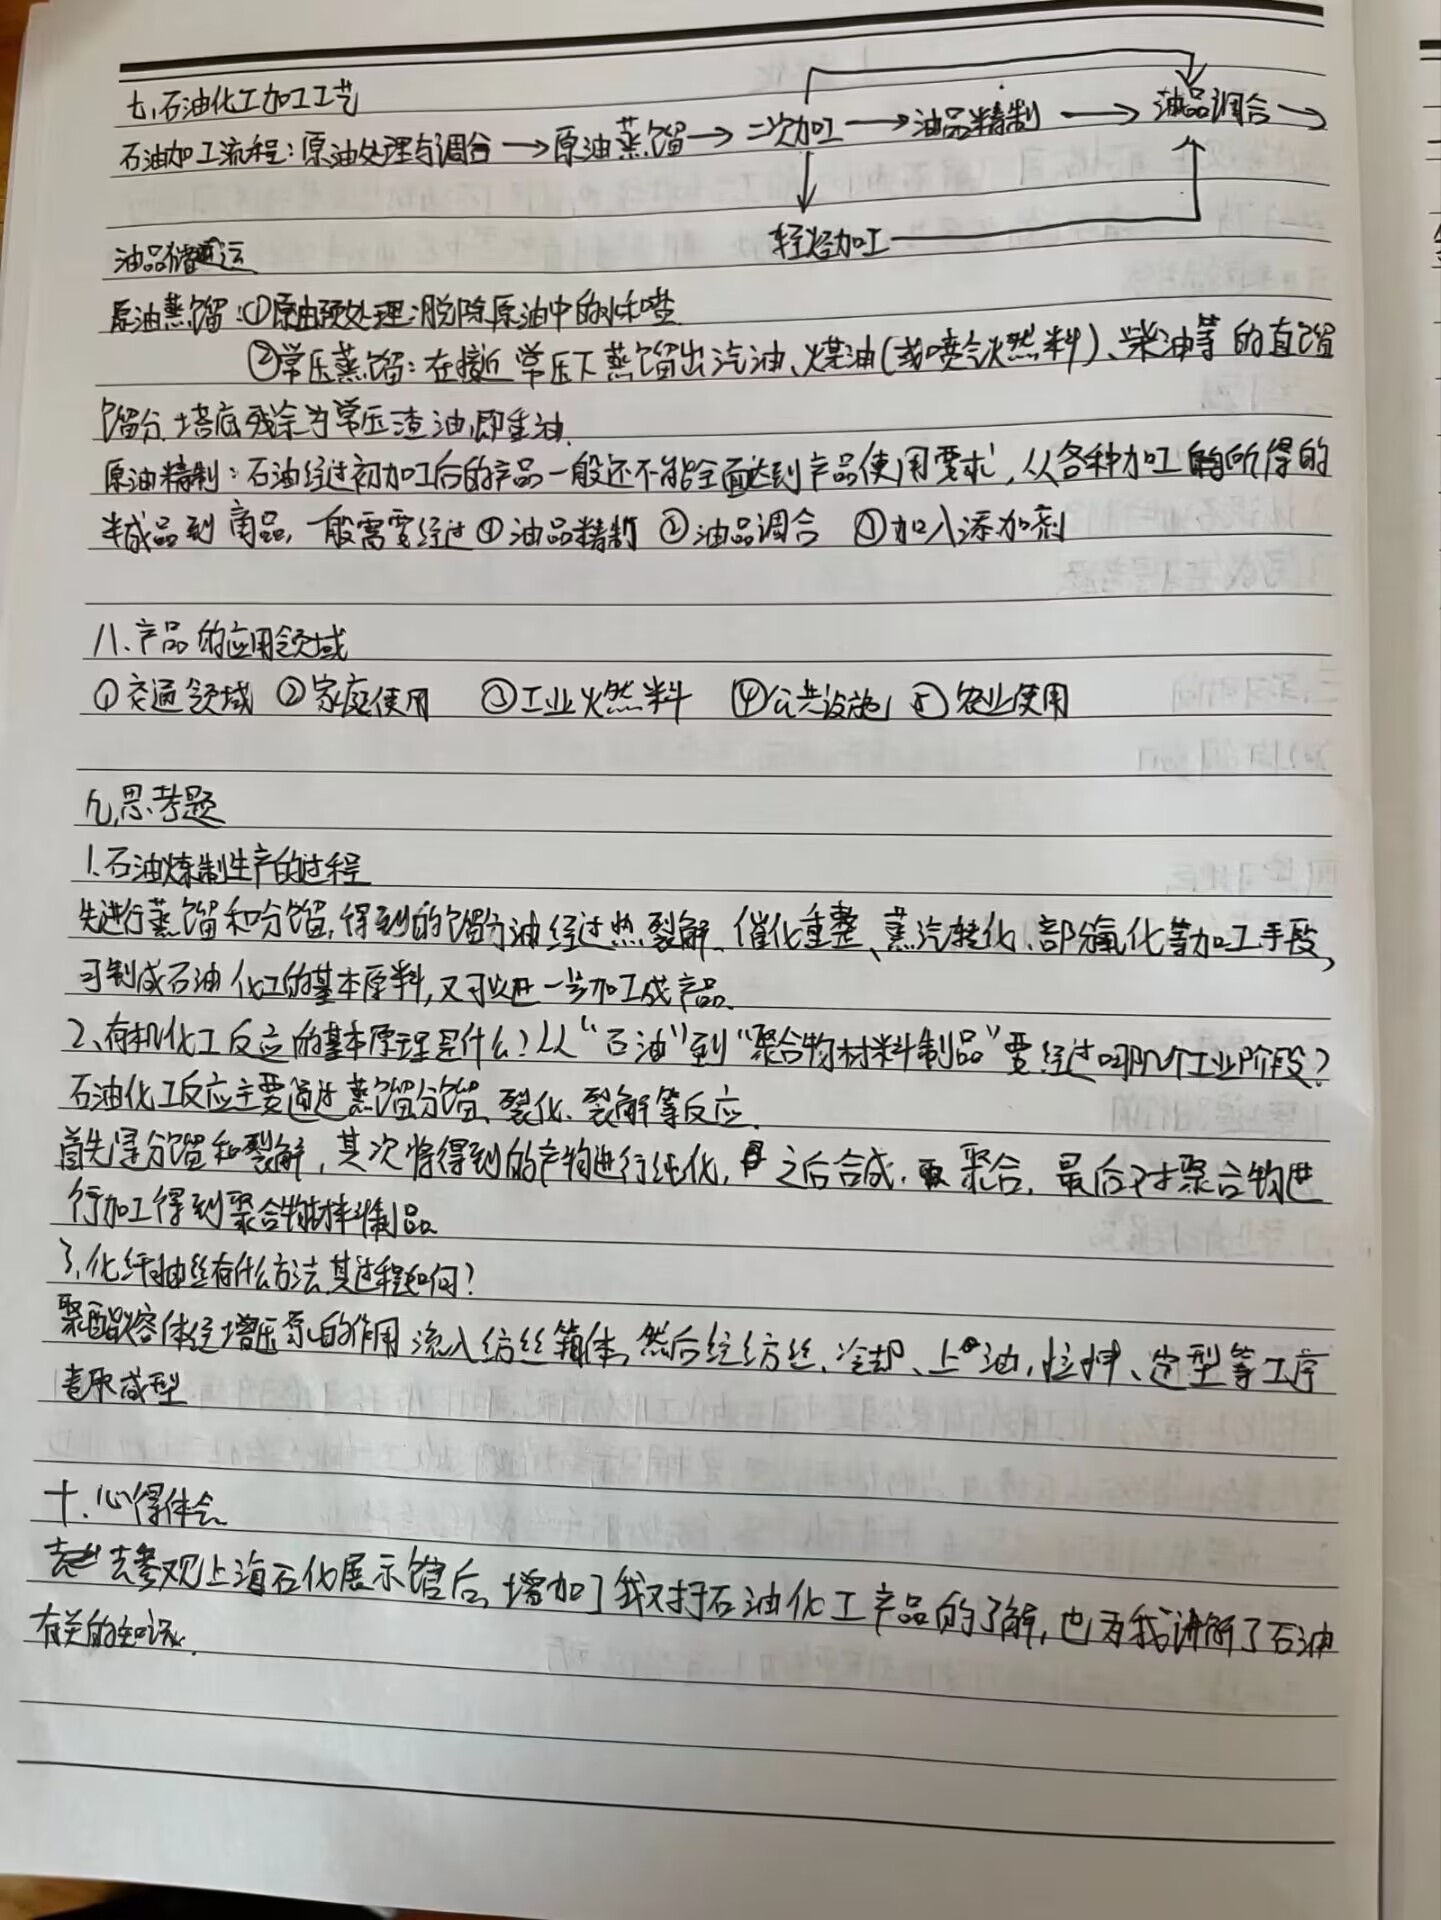 七、石油化工加工工艺
石油加工流程:原油处理与调合→原油蒸馏→二次加工→油品精制→油品调合→
轻烃加工
油品储运
原油蒸馏:①原油预处理:脱除原油中的水和盐
②常压蒸馏:在接近常压下蒸馏出汽油、煤油(或喷气燃料)、柴油等的直馏
馏分,塔底残余为常压渣油,即重油.
原油精制:石油经过初加工后的产品一般还不能全面达到产品使用要求,从各种加工所得的
半成品到商品,一般需要经过①油品精制 ②油品调合 ③加入添加剂
八、产品的应用领域
①交通领域 ②家庭使用 ③工业燃料 ④公共设施 ⑤农业使用
九、思考题
1.石油炼制生产的过程
先进行蒸馏和分馏,得到的馏分油经过热裂解、催化重整、蒸汽转化、部分氧化等加工手段,
可制成石油化工的基本原料,又可以进一步加工成产品.
2、有机化工反应的基本原理是什么?从“石油”到“聚合物材料制品”要经过哪几个工业阶段?
石油化工反应主要通过蒸馏分馏、裂化、裂解等反应.
首先是分馏和裂解,其次将得到的产物进行纯化,之后合成,聚合,最后对聚合物进
行加工得到聚合物材料制品.
3、化纤抽丝有什么方法,其过程如何?
聚酯熔体经增压泵的作用流入纺丝箱体,然后经纺丝、冷却、上油,拉伸、定型等工序
卷取成型
十、心得体会
去参观上海石化展示馆后,增加了我对于石油化工产品的了解,也为我讲解了石油
有关的知识.